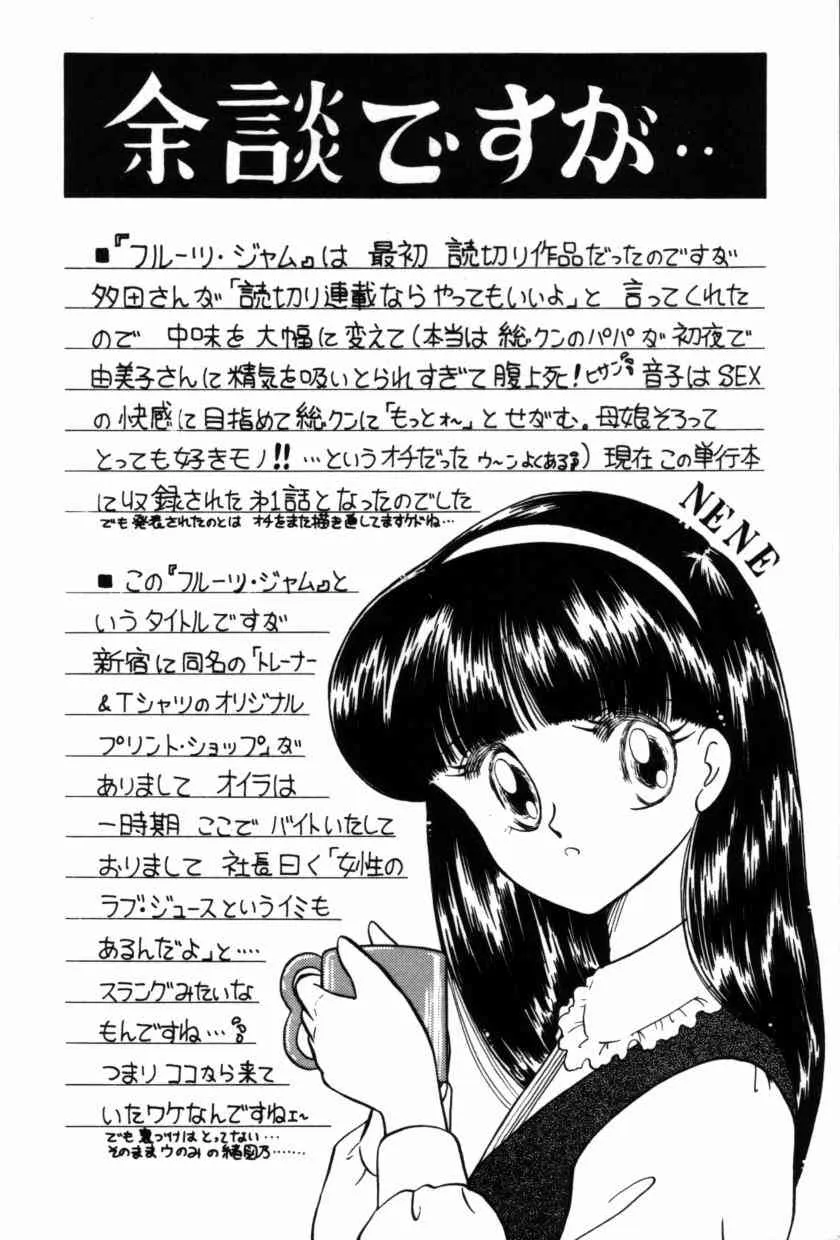 余談ですが‥
■『フルーツ・ジャム』は 最初 読切り作品だったのですが
多田さんが「読切り連載ならやってもいいよ」と 言ってくれた
ので 中味を 大幅に 変えて(本当は 総クンのパパが 初夜で
由美子さんに 精気を吸いとられすぎて 腹上死!ヒサン 音子はSEX
の 快感に 目指めて 総クンに「もっとォ〜」と せがむ。母娘そろって
とっても好きモノ!!…というオチだった ウ〜ンよくある)現在 この単行本
に収録された 第1話となったのでした
でも 発表されたのとは オチをまた描き直してますケドね…
NENE
■ この『フルーツ・ジャム』と
いうタイトルですが
新宿に 同名の「トレーナー
&Tシャツのオリジナル
プリント・ショップ」が
ありまして オイラは
一時期 ここで バイトいたして
おりまして 社長曰く「女性の
ラブ・ジュースというイミも
あるんだよ」と‥‥
スラングみたいな
もんですね…
つまり ココから来て
いたワケなんですねェ〜
でも 裏づけは とってない…
そのまま ウのみ の